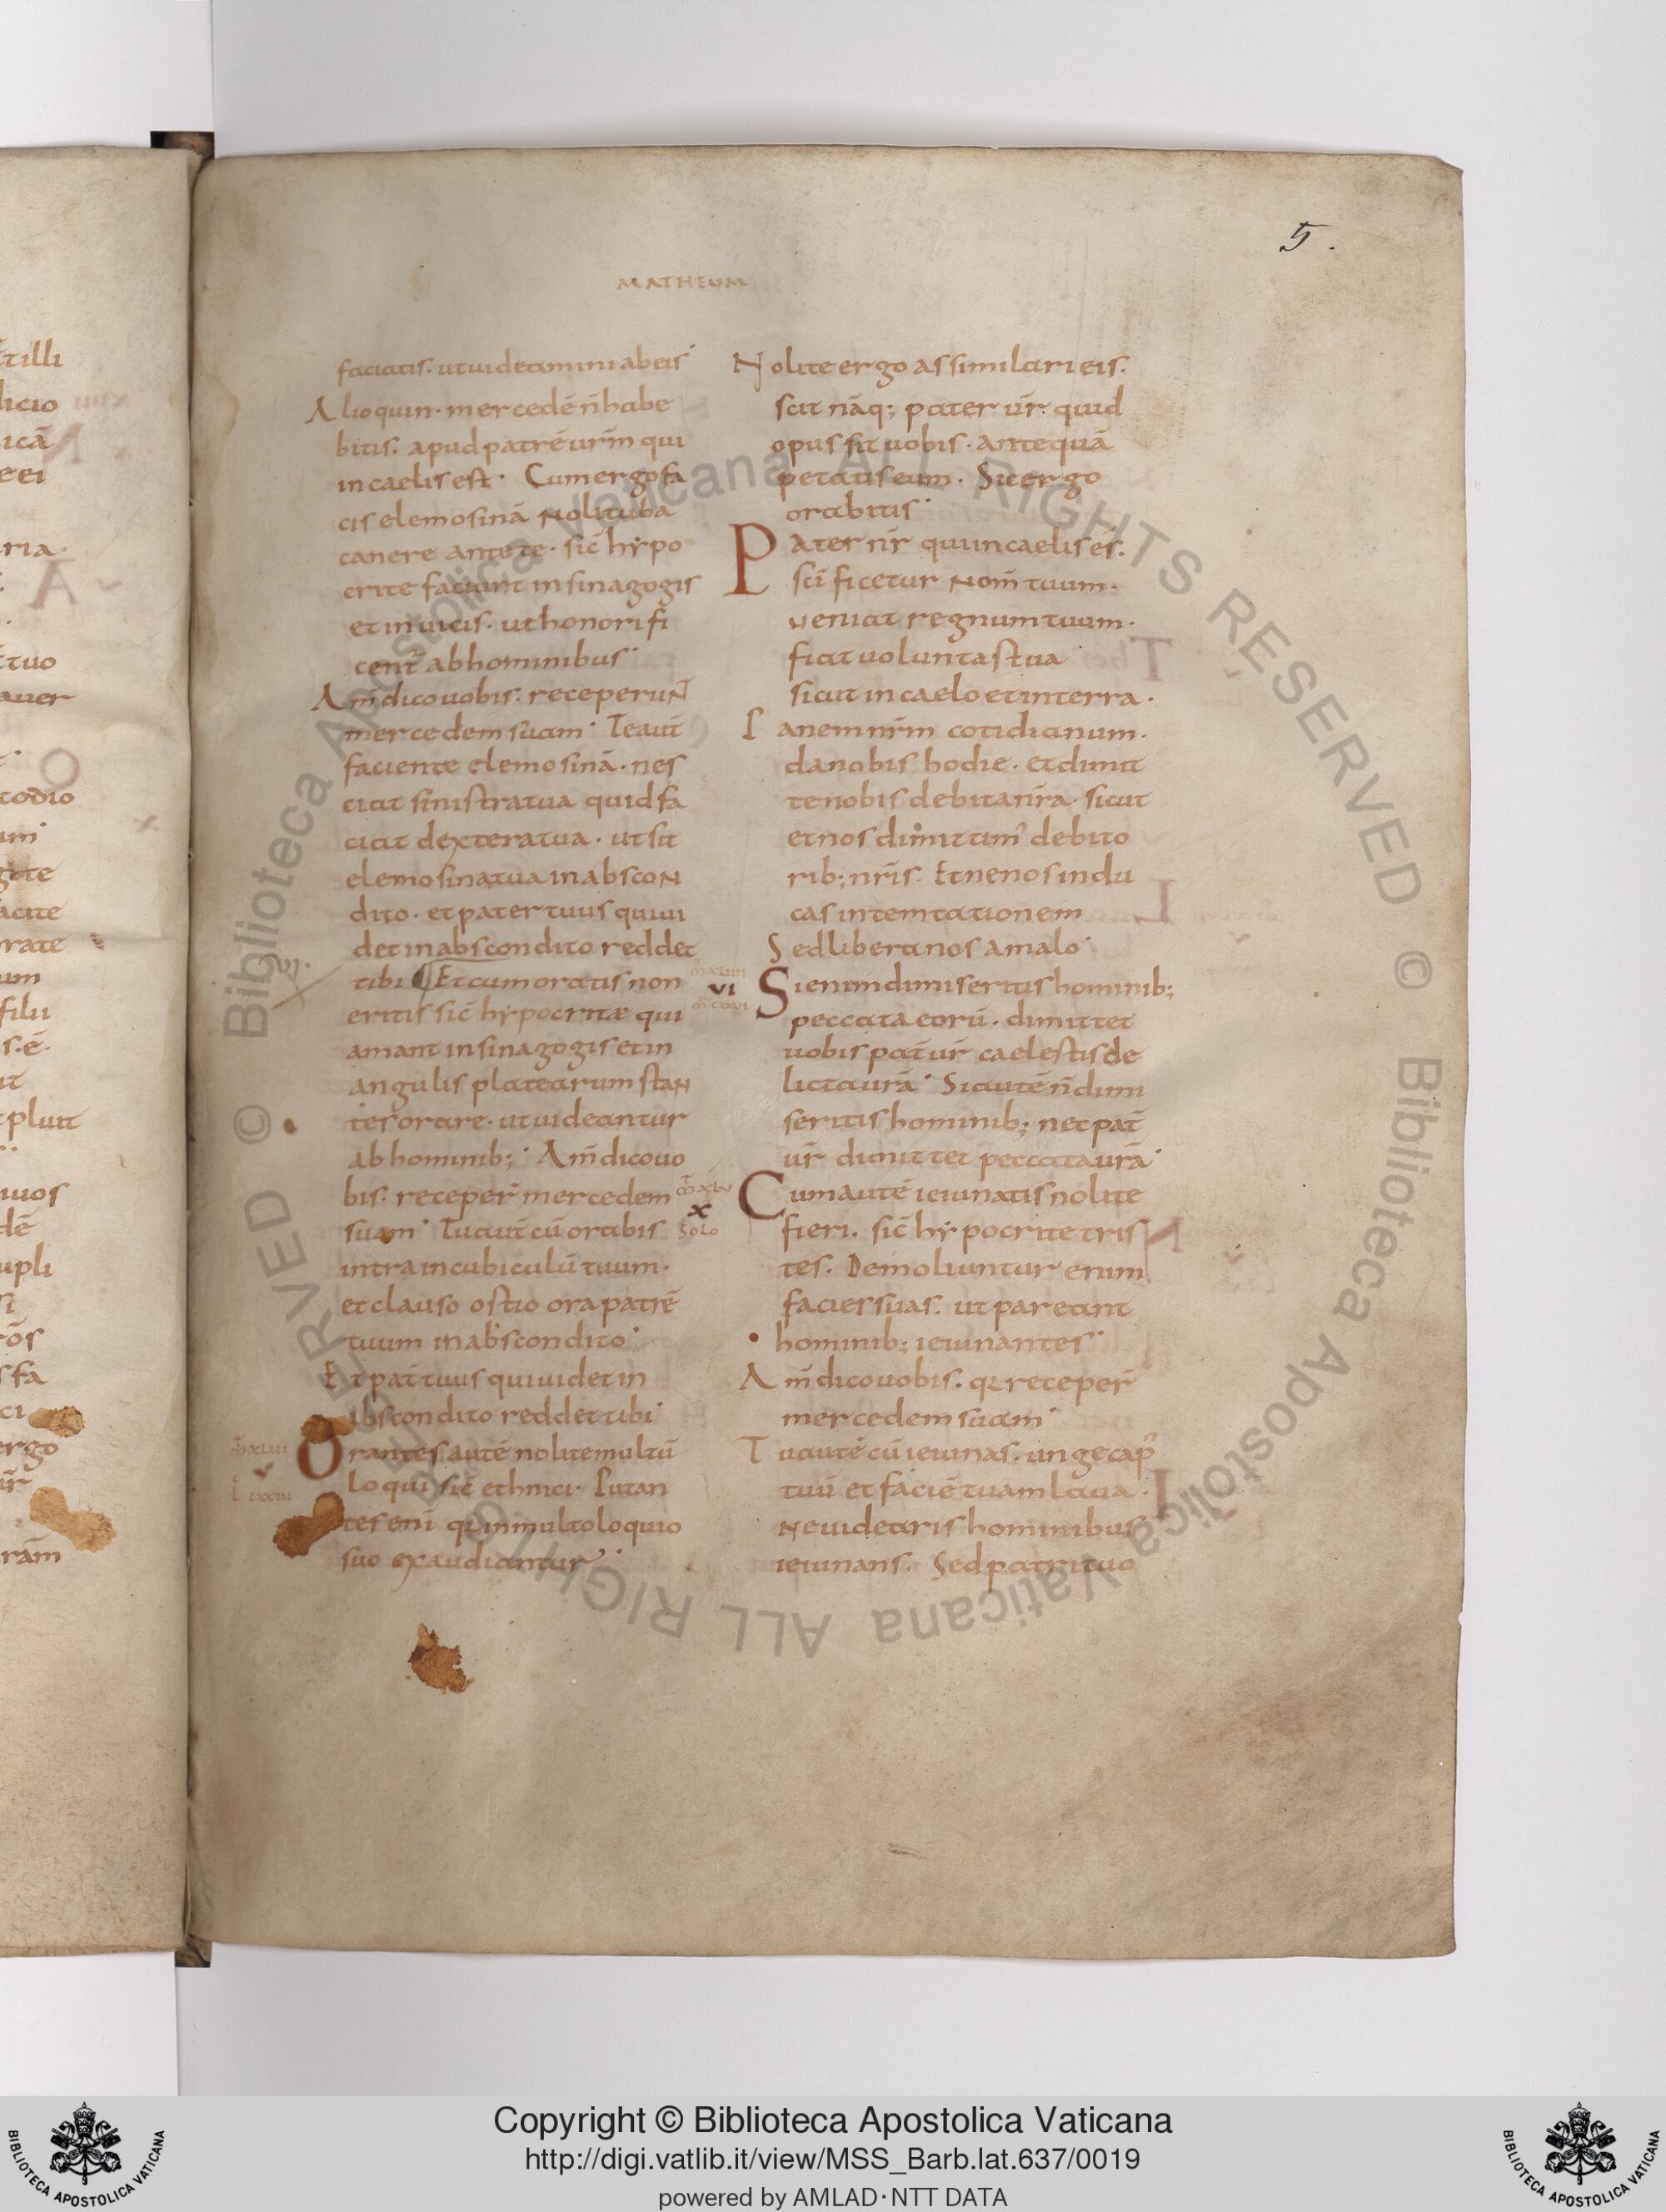 5.
MATHEUM
faciatis. ut uideamini ab eis
Alioquin. mercedē n̄ habe
bitis. apud patrē ur̄m qui
in caelis est. Cum ergo fa
cis elemosinā Noli tuba
canere ante te. sic̄ hypo
crite faciunt in sinagogis
et in uicis. ut honorifi
cent̄ ab hominibus
Am̄ dico uobis. receperuNT
mercedem suam Te aut̄
faciente elemosinā. nes
ciat sinistra tua quid fa
ciat dextera tua. ut sit
elemosina tua in abscoN
dito. et pater tuus qui ui
det in abscondito reddet
tibi ¶ Et cum oratis non
eritis sic̄ hypocritæ qui
amant in sinagogis et in
angulis platearum staN
tes orare. ut uideantur
ab hominib; Am̄ dico uo
bis. receper̄ mercedem
suam Tu aut̄ cū orabis
intra in cubiculū tuum.
et clauso ostio ora patrē
tuum in abscondito
Et pat̄ tuus qui uidet in
abscondito reddet tibi
Orantes autē nolite multū
loqui sic̄ ethnici. Putan
tes eni qꝛ in multoloquio
suo exaudiantur
vi
x
Solo
v
Nolite ergo assimilari eis.
scit nāq; pater ur̄. quid
opus sit uobis. antequā
petatis eum. Sic ergo
orabitis
Pater nr̄ qui in caelis es.
sc̄ificetur Nom̄ tuum.
ueniat regnum tuum.
fiat uoluntas tua
sicut in caelo et in terra.
Panem nr̄m cotidianum.
da nobis hodie. et dimit
te nobis debita nr̄a. sicut
et nos dimittim' debito
rib; nr̄is. Et ne nos indu
cas in temtationem
Sed libera nos a malo
Si enim dimiseritis hominib;
peccata eorū. dimittet
uobis pat̄ ur̄ caelestis de
licta ur̄a Si autē n̄ dimi
seritis hominib; nec pat̄
ur̄ dimittet peccata ur̄a
Cum autē ieiunatis nolite
fieri. sic̄ hypocrite tris
tes. Demoliuntur enim
facies suas. ut pareant
hominib; ieiunantes
Am̄ dico uobis. qꝛ receper̄
mercedem suam
Tu autē cū ieiunas. unge cap'
tuū et faciē tuam laua.
Ne uidearis hominibus
ieiunans. Sed patri tuo
Copyright © Biblioteca Apostolica Vaticana
http://digi.vatlib.it/view/MSS_Barb.lat.637/0019
powered by AMLAD·NTT DATA
BIBLIOTECA APOSTOLICA VATICANA
BIBLIOTECA APOSTOLICA VATICANA
© Biblioteca Apostolica Vaticana ALL RIGHTS RESERVED © Biblioteca Apostolica Vaticana ALL RIGHTS RESERVED